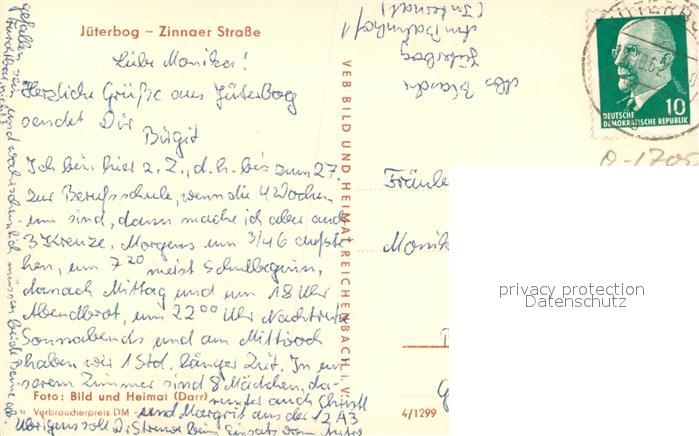 Jüterbog – Zinnaer Straße
Liebe Monika!
Herzliche Grüße aus Jüterbog
sendet Dir
Birgit
Ich bin hier z. Z., d. h. bis zum 27.
zur Berufsschule, wenn die 4 Wochen
um sind, dann mache ich aber auch
3 Kreuze. Morgens um 3/4 6 aufste
hen, um 7 20 meist Schulbeginn,
danach Mittag und um 18 Uhr
Abendbrot, um 22 00 Uhr Nachtruhe
Sonnabends und am Mittwoch
haben wir 1 Std. länger Zeit. In un
serem Zimmer sind 8 Mädchen, da-
runter auch Christl
und Margrit aus der 12 A3
Übrigens soll beim Einsatz vom
gefallen sein und wahrscheinlich müssen beide Beine ab.
Furchtbar, nicht?
Foto: Bild und Heimat (Darr)
Verbraucherpreis DM
VEB BILD UND HEIMAT REICHENBACH i. V.
4/1299
Am Bahnhof 1
(Internat)
Jüterbog
DEUTSCHE
DEMOKRATISCHE REPUBLIK
10
Fräule
Monik
privacy protection
Datenschutz